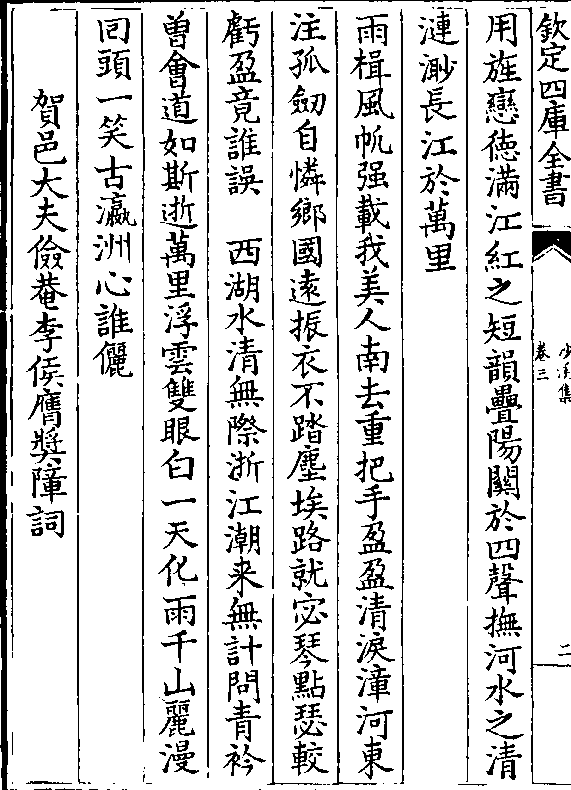 欽定四庫全書
少溪集
卷三
二
用旌戀徳滿江紅之短韻疊陽關於四聲撫河水之清
漣渺長江於萬里
雨楫風帆强載我美人南去重把手盈盈清淚漳河東
注孤劒自憐鄉國遠振衣不踏塵埃路就宓琴點瑟較
虧盈竟誰誤　西湖水清無際浙江潮来無計問青衿
曽會道如斯逝萬里浮雲雙眼白一天化雨千山麗漫
囘頭一笑古瀛洲心誰儷
賀邑大夫儉菴李侯膺奬障詞